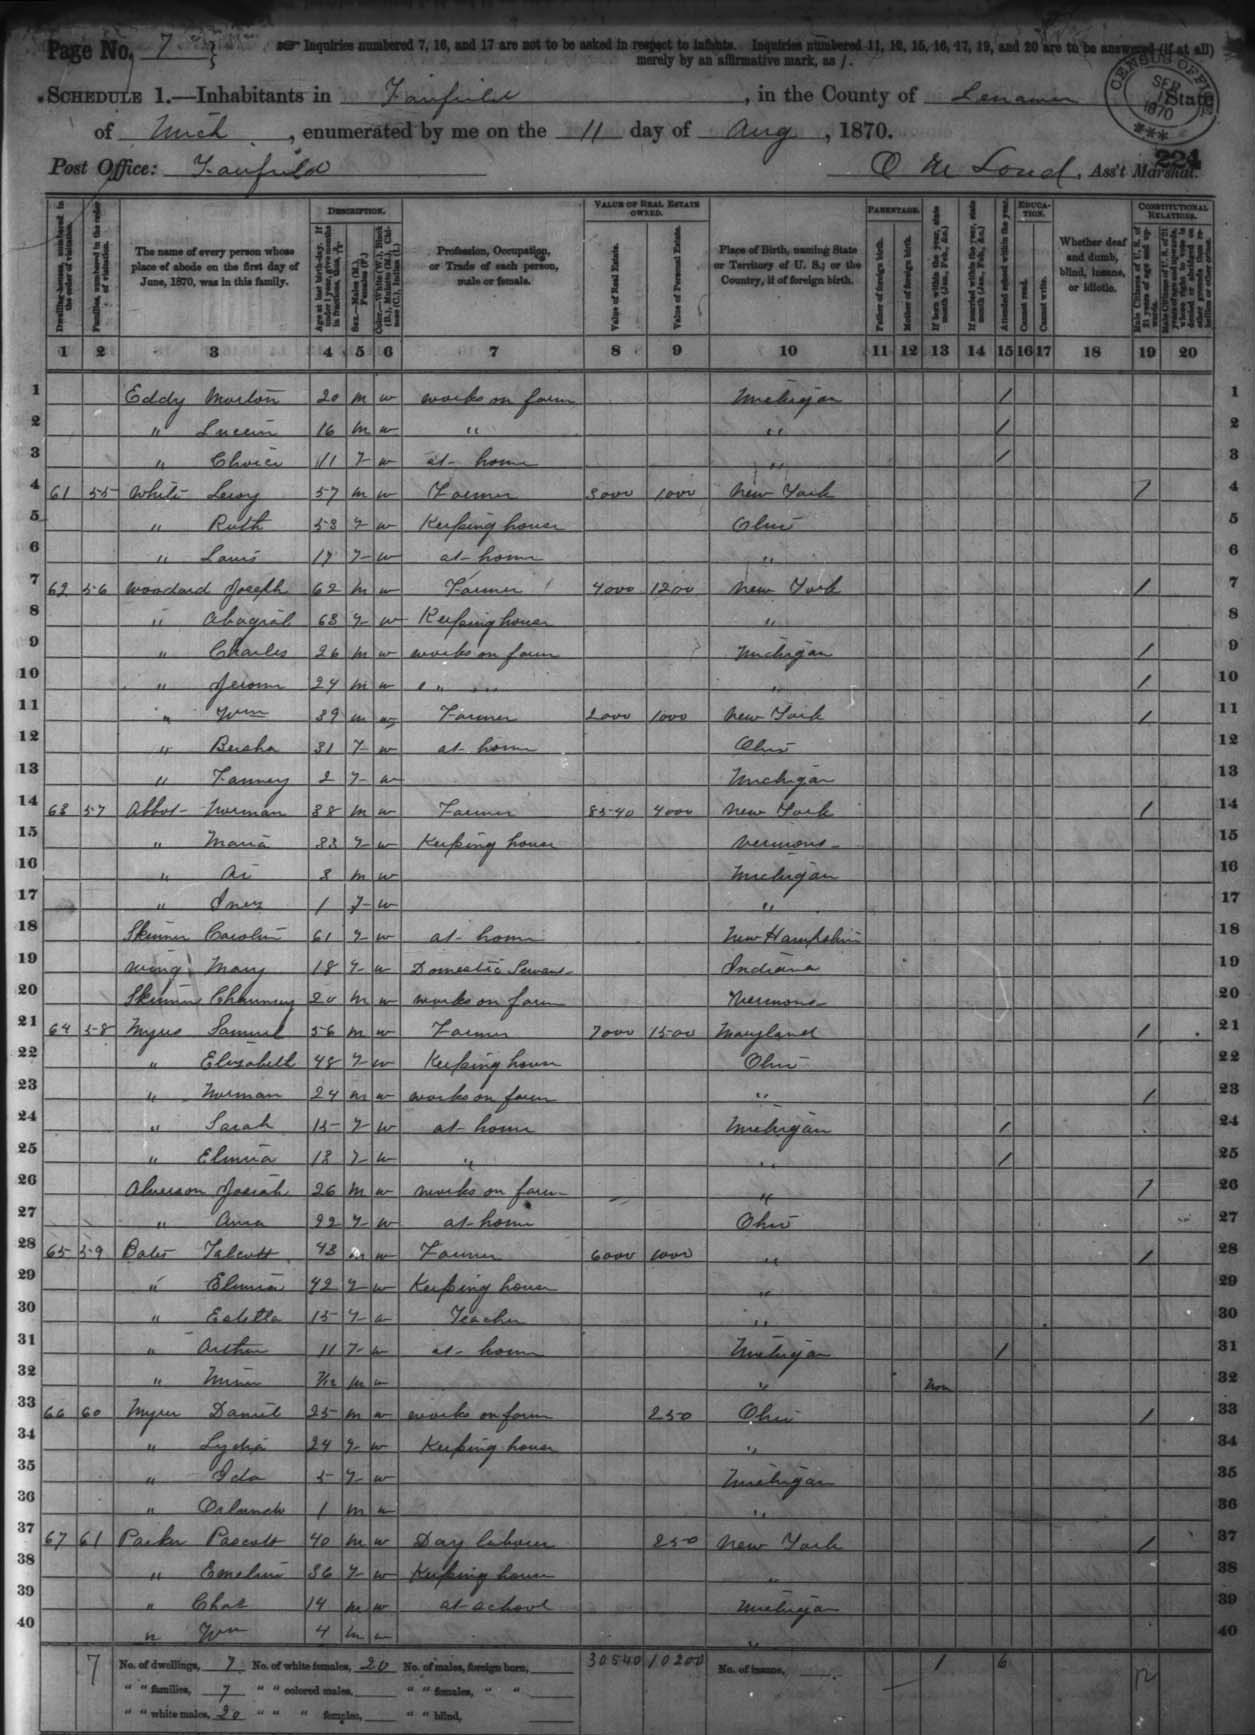 Page No. 7
Inquiries numbered 7, 16, and 17 are not to be asked in respect to infants. Inquiries numbered 11, 12, 15, 16, 17, 19, and 20 are to be answered (if at all)
merely by an affirmative mark, as /.
SCHEDULE 1.—Inhabitants in Fairfield, in the County of Lenawee, State
of Mich, enumerated by me on the 11 day of Aug, 1870.
CENSUS OFFICE SEP 1870
Post Office: Fairfield
Ass't Marshal.
224
Dwelling-houses, numbered in the order of visitation.
Families, numbered in the order of visitation.
The name of every person whose place of abode on the first day of June, 1870, was in this family.
DESCRIPTION.
Age at last birth-day. If under 1 year, give months in fractions, thus, 3/12
Sex.—Males (M.), Females (F.)
Color.—White (W.), Black (B.), Mulatto (M.), Chinese (C.), Indian (I.)
Profession, Occupation, or Trade of each person, male or female.
VALUE OF REAL ESTATE OWNED.
Value of Real Estate.
Value of Personal Estate.
Place of Birth, naming State or Territory of U. S.; or the Country, if of foreign birth.
PARENTAGE.
Father of foreign birth.
Mother of foreign birth.
If born within the year, state month (Jan., Feb., &c.)
If married within the year, state month (Jan., Feb., &c.)
EDUCATION.
Attended school within the year.
Cannot read.
Cannot write.
Whether deaf and dumb, blind, insane, or idiotic.
CONSTITUTIONAL RELATIONS.
Male Citizens of U. S. of 21 years of age and upwards.
1 2 3 4 5 6 7 8 9 10 11 12 13 14 15 16 17 18 19 20
1 Eddy Morton 20 m w works on farm Michigan / 1
2 " 16 m w " " / 2
3 " 11 F w at home " / 3
4 61 55 White Leroy 57 m w Farmer 3000 1000 New York / 4
5 " Ruth 53 F w Keeping house Ohio 5
6 " 17 F w at home " 6
7 62 56 Woodard Joseph 62 m w Farmer 4000 1200 New York / 7
8 " Abagial 63 F w Keeping house " 8
9 " Charles 26 m w works on farm Michigan / 9
10 " Jerome 24 m w " " " / 10
11 " Wm 39 m w Farmer 2000 1000 New York / 11
12 " 31 F w at home Ohio 12
13 " Fanney 2 F w Michigan 13
14 63 57 Abbot Norman 38 m w Farmer 8540 4000 New York / 14
15 " Maria 33 F w Keeping house Vermont 15
16 " 3 m w Michigan 16
17 " Inez 1 F w " 17
18 Skinner Carolin 61 F w at home New Hampshire 18
19 Wing Mary 18 F w Domestic Servant Indiana 19
20 Skinner Chauncey 20 m w works on farm Vermont 20
21 64 58 Myres Samuel 56 m w Farmer 7000 1500 Maryland / 21
22 " Elizabeth 48 F w Keeping house Ohio 22
23 " Norman 24 m w works on farm " / 23
24 " Sarah 15 F w at home Michigan / 24
25 " Elmira 13 F w " " / 25
26 Alverson Josiah 26 m w works on farm " / 26
27 " Anna 22 F w at home Ohio 27
28 65 59 Talcott 43 m w Farmer 6000 1000 " / 28
29 " Elmira 42 F w Keeping house " 29
30 " 15 F w Teacher " 30
31 " Arthur 11 F w at home Michigan / 31
32 " 7/12 m w " Nov 32
33 66 60 Myres Daniel 25 m w works on farm 250 Ohio / 33
34 " Lydia 24 F w Keeping house " 34
35 " Ida 5 F w Michigan 35
36 " Orlando 1 m w " 36
37 67 61 Parker 40 m w Day laborer 250 New York / 37
38 " Emeline 36 F w Keeping house " 38
39 " Chas 14 m w at school Michigan 39
40 " Wm 4 m w " 40
7 No. of dwellings, 7 No. of white females, 20 No. of males, foreign born, 30540 10200 No. of insane, 1 6 12
" " families, 7 " " colored males, " " females, " "
" " white males, 20 " " " females, " " blind,